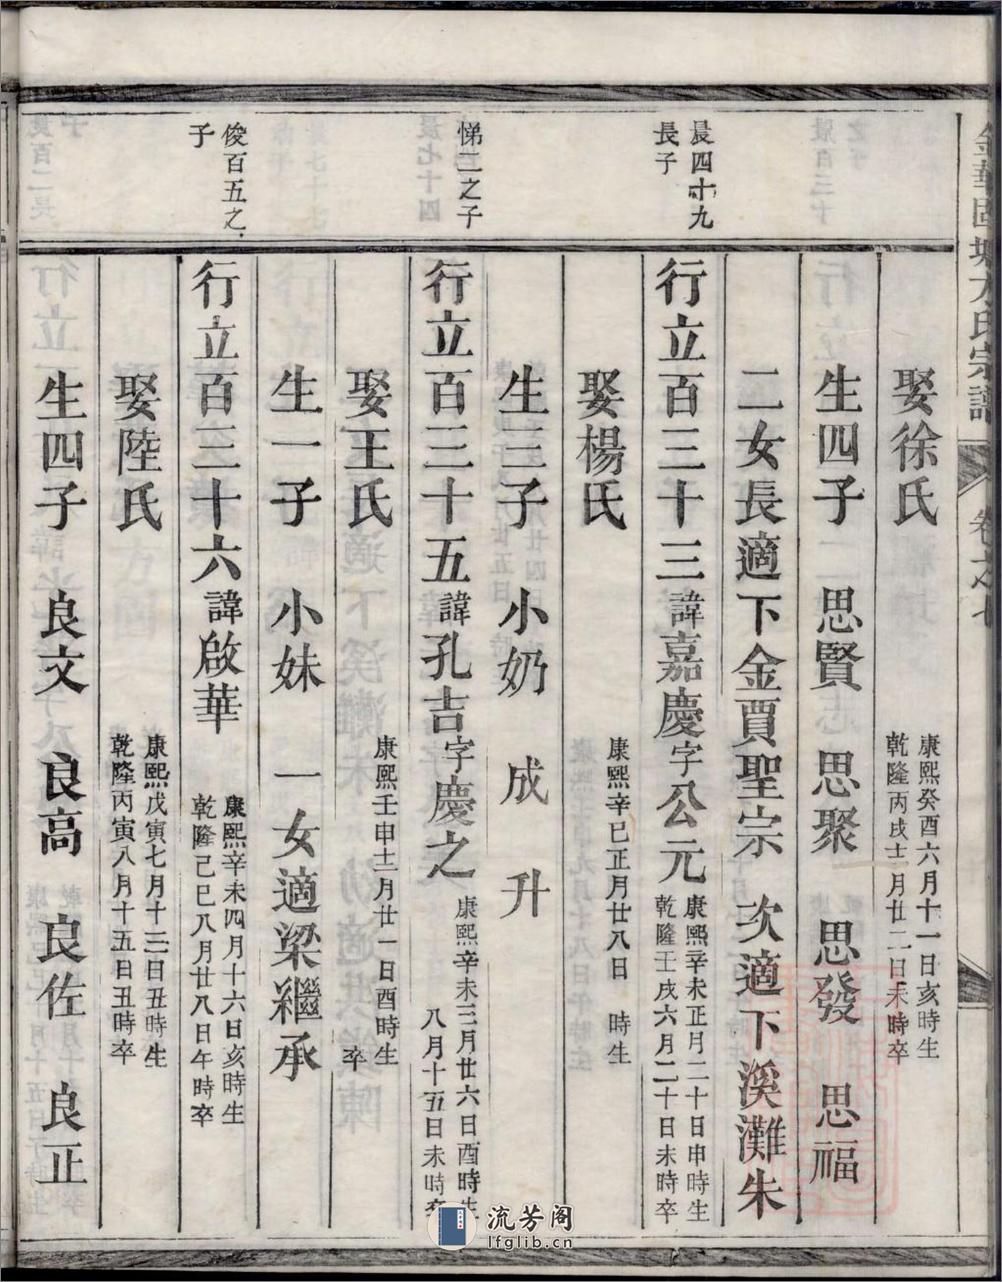 金華國塘方氏宗譜 卷之七
娶徐氏 康熙癸酉六月十一日亥時生
乾隆丙戌十二月廿二日未時卒
生四子 思賢 思聚 思發 思福
二女長適下金賈聖宗 次適下溪灘朱
晨四十九
長子
行立百三十三諱嘉慶字公元 康熙辛未正月二十日申時生
乾隆壬戌六月二十日未時卒
娶楊氏 康熙辛巳正月廿八日 時生
生三子 小奶 成 升
悌二之子
行立百三十五諱孔吉字慶之 康熙辛未三月廿六日酉時生
八月十五日未時卒
娶王氏 康熙壬申十二月廿一日酉時生
卒
生一子 小妹 一女適梁繼承
俊百五之
子
行立百三十六諱啟華 康熙辛未四月十六日亥時生
乾隆己巳八月廿八日午時卒
娶陸氏 康熙戊寅七月十三日丑時生
乾隆丙寅八月十五日丑時卒
生四子 良文 良高 良佐 良正
流芳阁
lfglib.cn